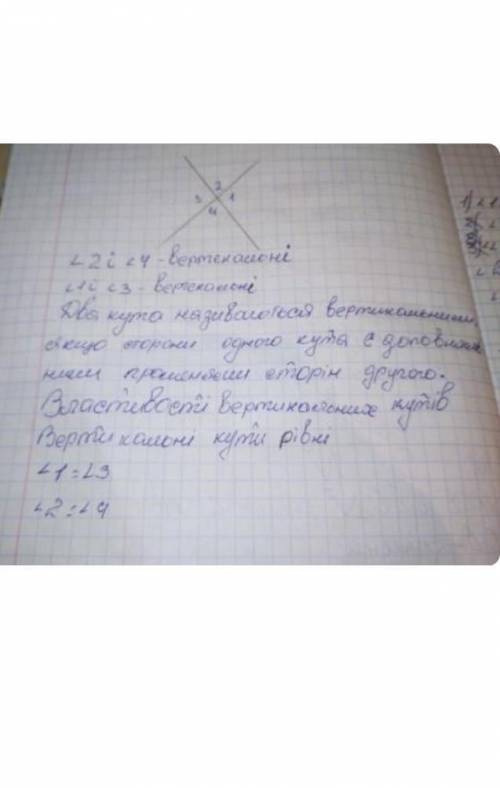 2
3 1
4
∠2 і ∠4 - вертекальні
∠1 і ∠3 - вертекальні
Два кута називаються вертикальними,
якщо сторони одного кута є доповняль
ними променями сторін другого.
Властивості вертикальних кутів
Вертикальні кути рівні
∠1=∠3
∠2=∠4
1)